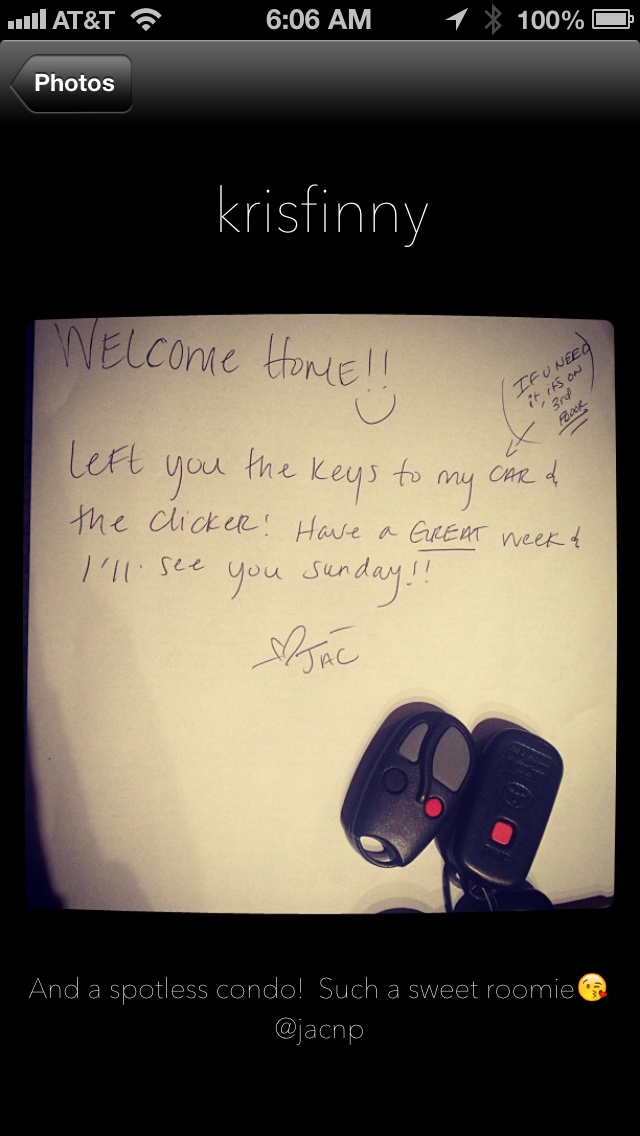 AT&T 6:06 AM 100%
Photos
krisfinny
WELCOME HOME!!
IF U NEED
it, its ON
3rd
FLOOR
Left you the keys to my CAR &
the clicker! Have a GREAT week &
I'll see you sunday!!
JAC
And a spotless condo! Such a sweet roomie😘
@jacnp